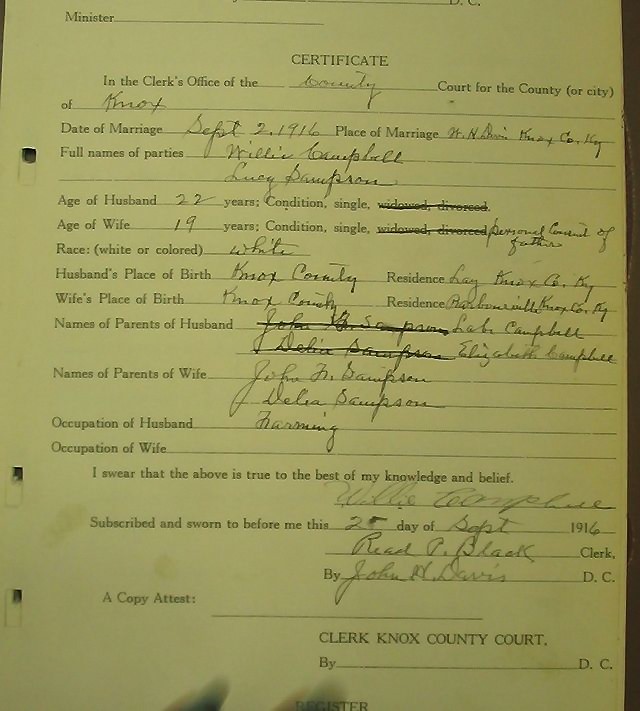 D. C.
Minister
CERTIFICATE
In the Clerk's Office of the County Court for the County (or city)
of Knox
Date of Marriage Sept 2, 1916 Place of Marriage W. H. Davis Knox Co. Ky
Full names of parties Willie Campbell
Lucy Sampson
Age of Husband 22 years; Condition, single, widowed, divorced.
Age of Wife 19 years; Condition, single, widowed, divorced personal Consent of father
Race: (white or colored) white
Husband's Place of Birth Knox County Residence Lay Knox Co. Ky
Wife's Place of Birth Knox County Residence Barbourville Knox Co. Ky
Names of Parents of Husband John Sampson Campbell
Delia Sampson Elizabeth Campbell
Names of Parents of Wife John Sampson
Delia Sampson
Occupation of Husband Farming
Occupation of Wife
I swear that the above is true to the best of my knowledge and belief.
Willie Campbell
Subscribed and sworn to before me this day of Sept 1916
Read P. Black Clerk,
By John H. Davis D. C.
A Copy Attest:
CLERK KNOX COUNTY COURT.
By D. C.
REGISTER